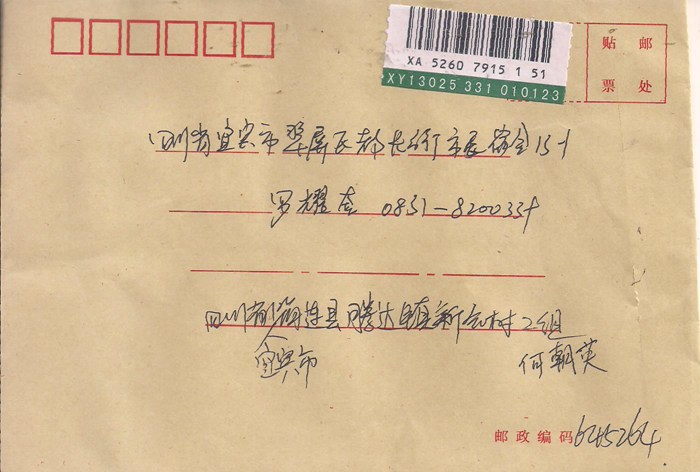 XA 5260 7915 1 51
XY13025 331 010123
贴 邮
票 处
四川省宜宾市翠屏区都长街市民宿舍15#
罗耀 0831-8200354
四川省筠连县腾达镇新云村2组
宜宾市
何朝英
邮政编码645264